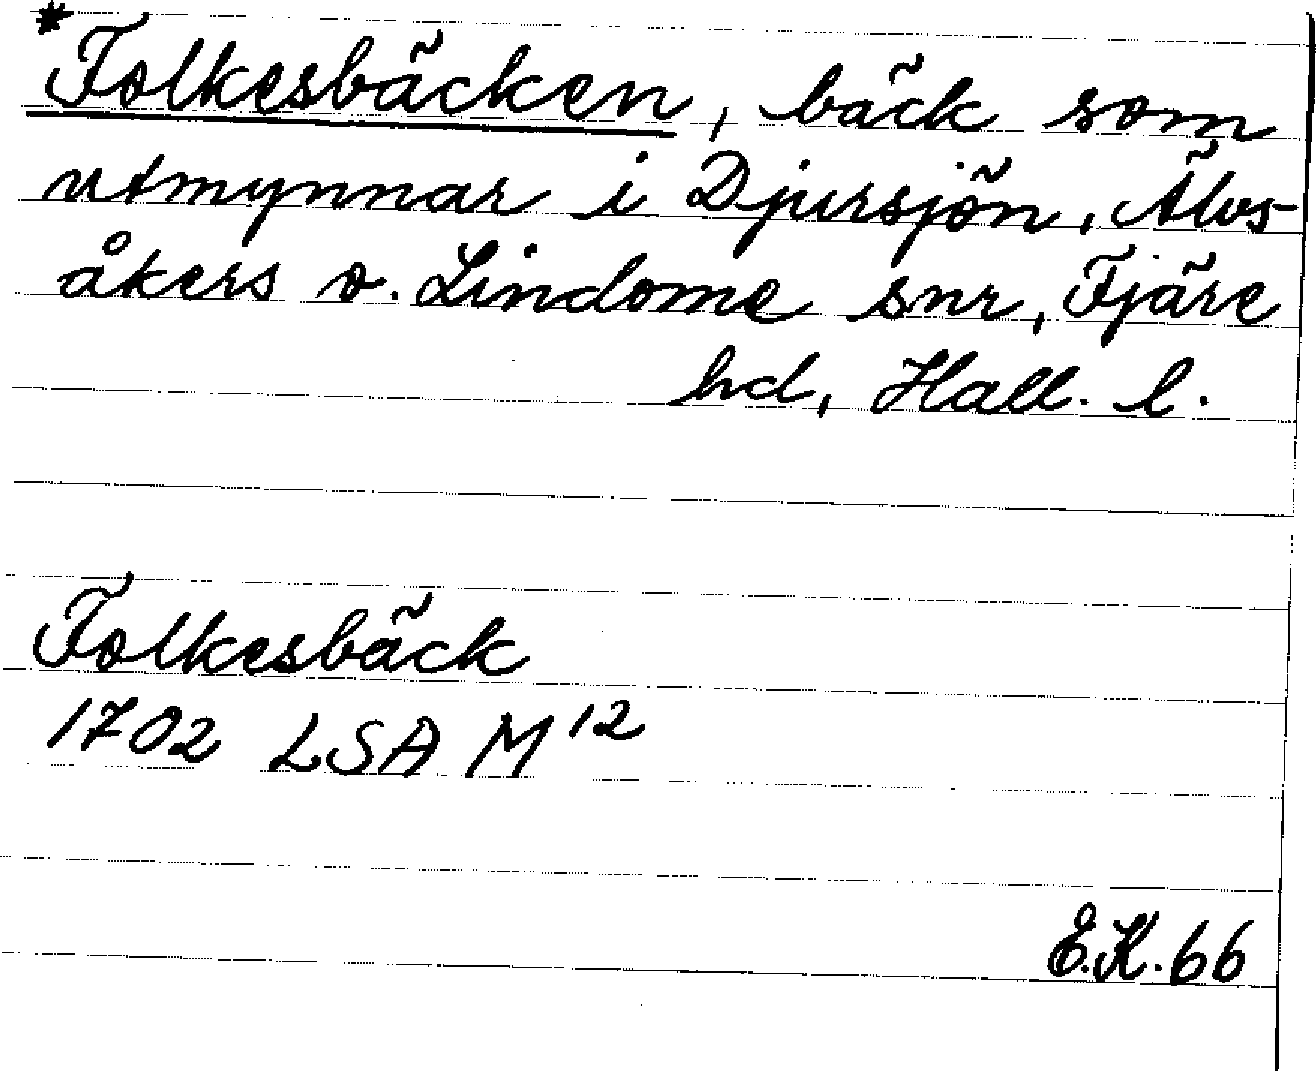 *Folkesbäcken, bäck som
utmynnar i Djursjön, Älvs-
åkers o. Lindome snr, Fjäre
hd, Hall. l.
Folkesbäck
1702 LSA M12
E.K. 66